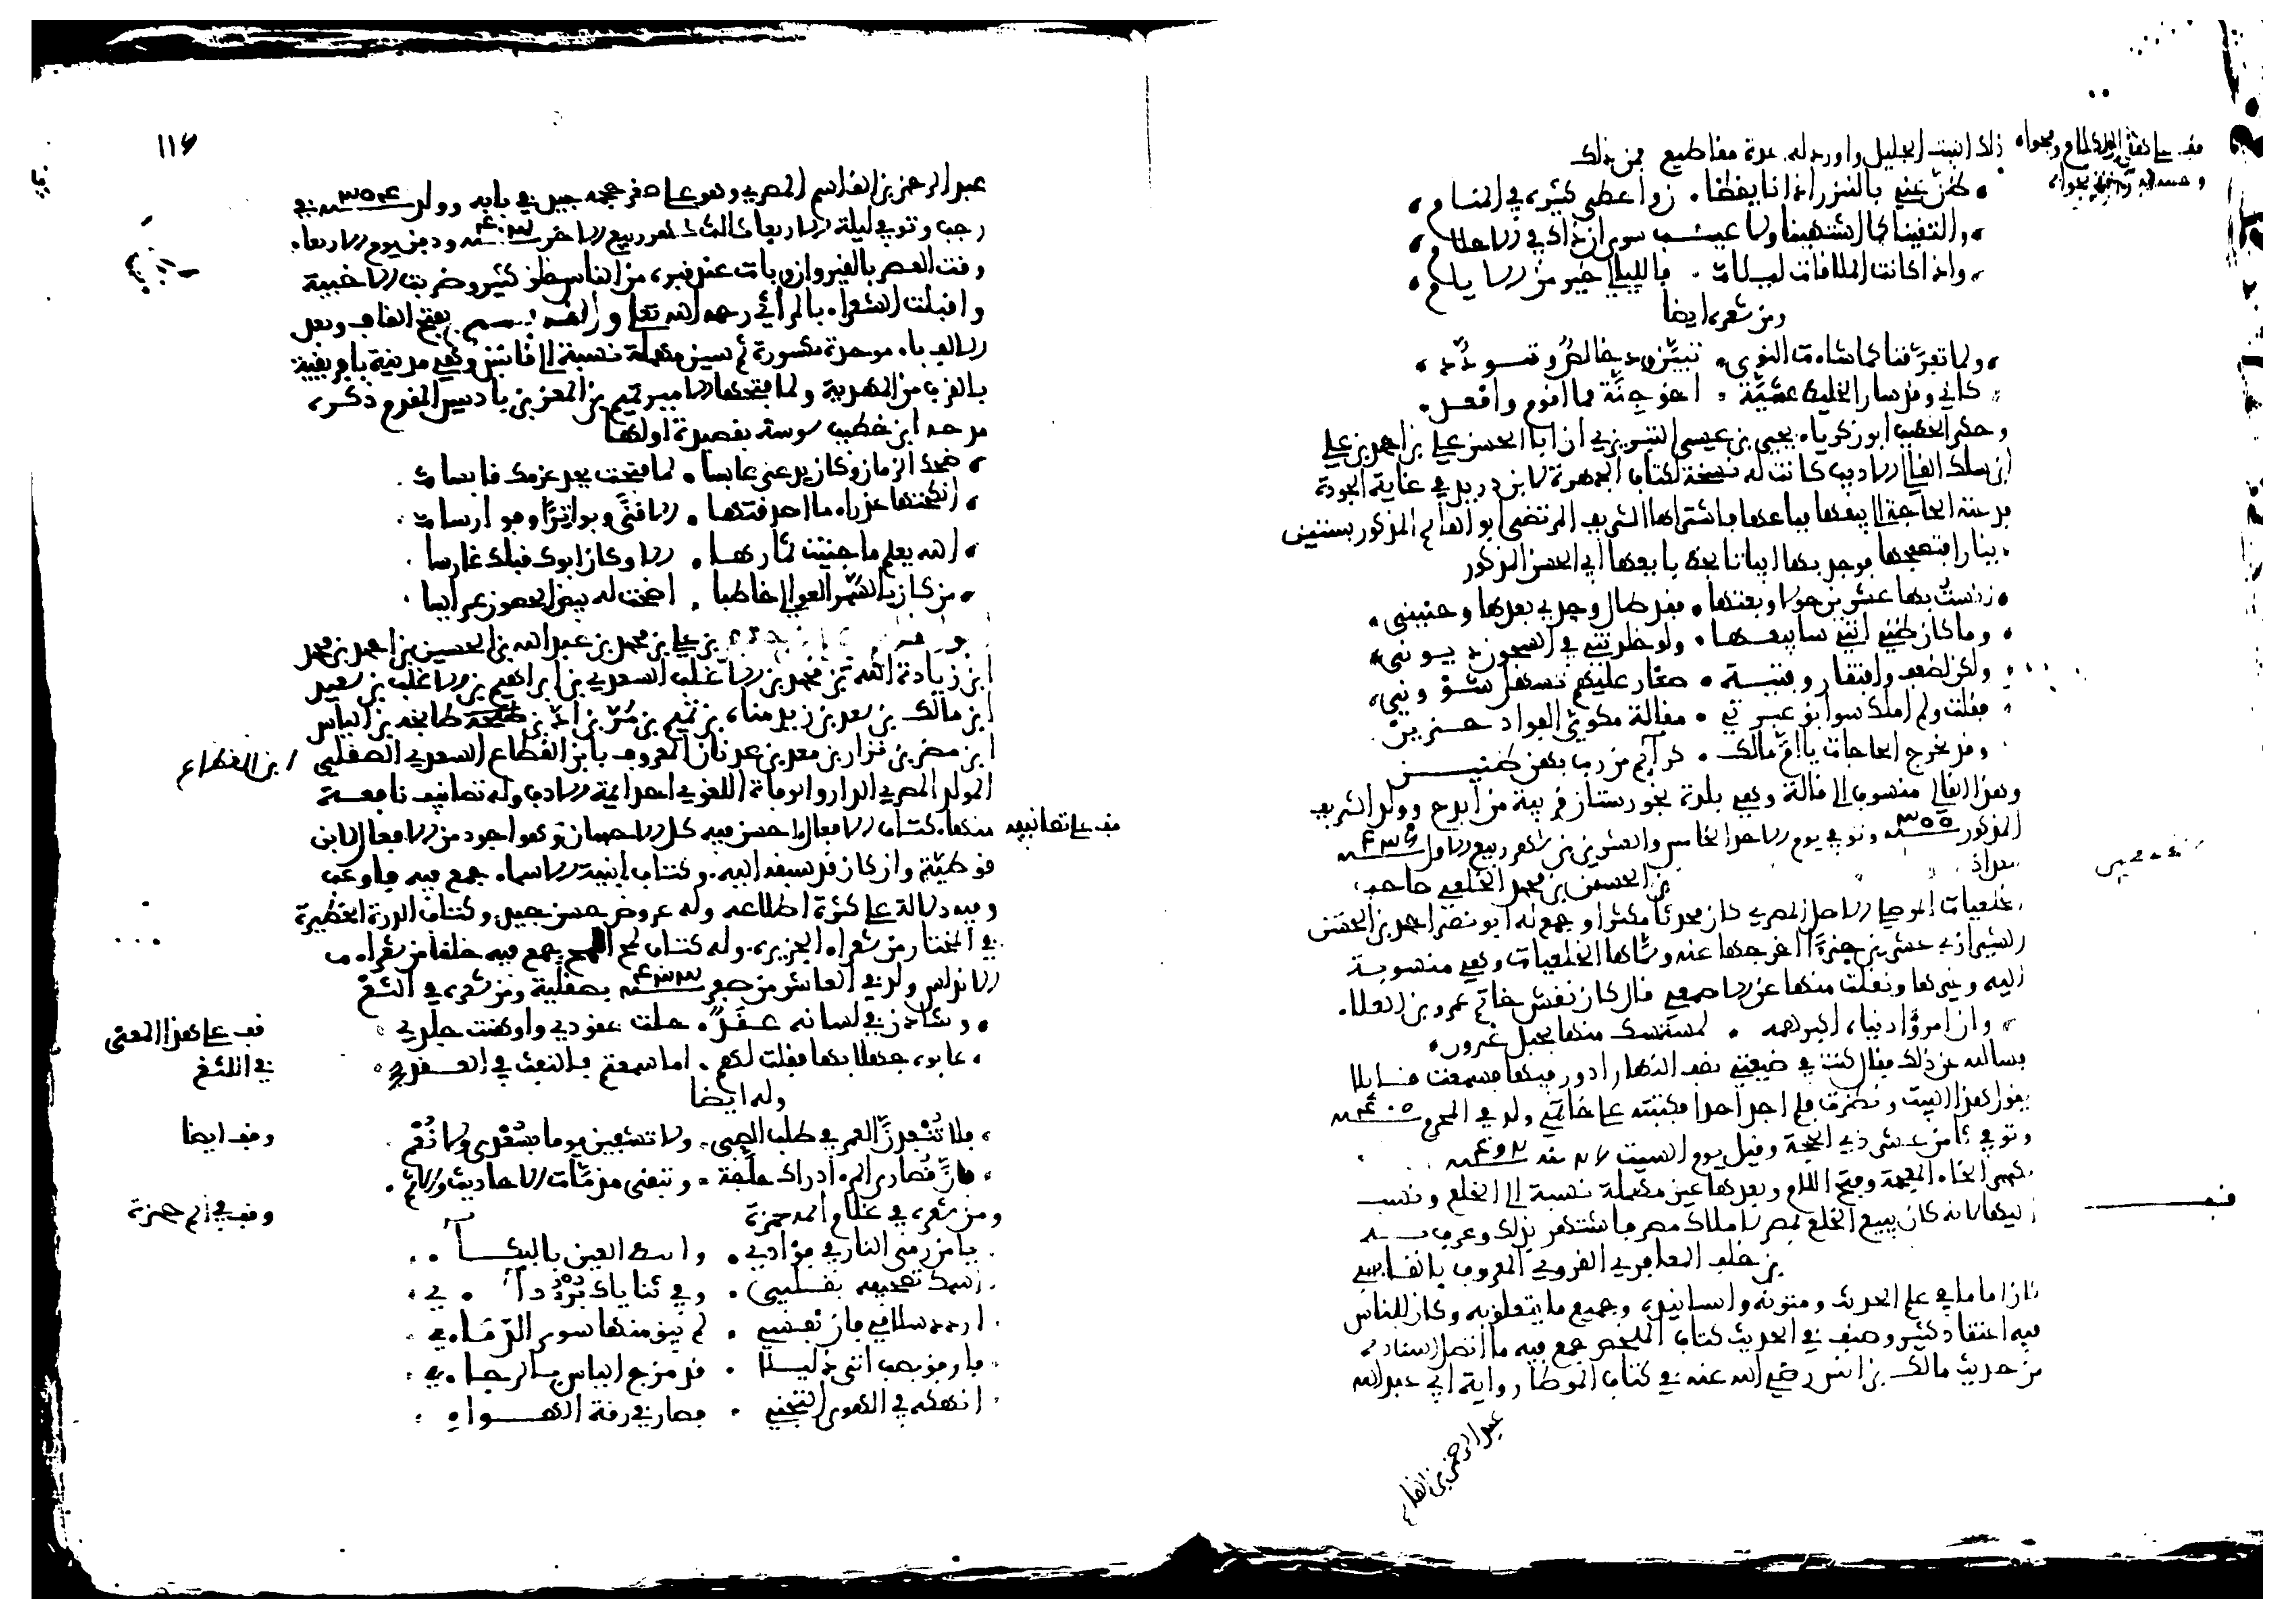 ذلك البيت الجليل واورد له عدة مقاطيع فمن ذلك
ضن عني بالنزر اذ انا يقظان واعطى كثيره في المنام
والتقينا كما اشتهينا ولا عيب سوى ان ذاك في الاحلام
واذا كانت الملاقاة ليلا فالليالي خير من الايام
ومن شعره ايضا
ولما تفرقنا كما شاءت النوى تبين ود خالص وتودد
كاني وقد سار الخليط عشية اخو جنة مما اقوم واقعد
وحكى الخطيب ابو زكرياء يحيى بن علي التبريزي ان ابا الحسن علي بن احمد بن علي
ابن سلك الفالي الاديب كانت له نسخة لكتاب الجمهرة لابن دريد في غاية الجودة
فدعته الحاجة الى بيعها فباعها فاشتراها الشريف المرتضى ابو القاسم المذكور بستين
دينارا فتصفحها فوجد بها ابياتا بخط بايعها ابي الحسن المذكور
انست بها عشرين حولا وبعتها فقد طال وجدي بعدها وحنيني
وما كان ظني انني سابيعها ولو خلدتني في السجون ديوني
ولكن لضعف وافتقار وفتية صغار عليهم تستهل شؤوني
فقلت ولم املك سوابق عبرتي مقالة مكوي الفواد حزين
وقد تخرج الحاجات يا ام مالك كرائم من رب بهن ضنين
وهذا الفالي منسوب الى فالة وهي بلدة بخورستان قريبة من ايدج وولد الشريف
المذكور ٣٥٥ سنة وتوفي يوم الاحد الخامس والعشرين من شهر ربيع الاول ٤٣٦ سنة
بن الحسين بن محمد الخلعي صاحب
الخلعيات الموصلي الاصل المصري كان محدثا مكثرا وجمع له ابو نصر احمد بن الحسن
الشيرازي عشرين جزءا اخرجها عنه وسماها الخلعيات وهي منسوبة
اليه وغيرها ونقلت منها عن الاصمعي قال كان نقش خاتم عمرو بن العلاء
وان امرؤا دنياه اكبر همه لمستمسك منها بحبل غرور
فسالته عن ذلك فقال كنت في ضيعتي نصف النهار ادور فيها فسمعت قايلا
يقول هذا البيت ونظرت فلم اجد احدا فكتبته على خاتمي ولد في المحرم ٤٠٥ سنة
وتوفي ثامن عشر ذي الحجة وقيل يوم السبت ٢٦ منه ٤٩٢ سنة
بكسر الخاء المعجمة وفتح اللام وبعدها عين مهملة نسبة الى الخلع ونسب
اليها لانه كان يبيع الخلع بمصر لاملاك مصر فاشتهر بذلك وعرف به
بن خلف المعافري القروي المعروف بالقابسي
كان اماما في علم الحديث ومتونه واسانيده وجميع ما يتعلق به وكان للناس
فيه اعتقاد كثير وصنف في الحديث كتاب الملخص جمع فيه ما اتصل اسناده
من حديث مالك بن انس رضي الله عنه في كتاب الموطا رواية ابي عبد الله
عبد الرحمن بن القاسم
١١٦
عبد الرحمن بن القاسم المصري وهو على صغر حجمه جيد في بابه وولد ٣٥٤ سنة في
رجب وتوفي ليلة الاربعاء الثالث شهر ربيع الاخر ٤٠٣ سنة ودفن يوم الاربعاء
وقت العصر بالقيروان وبات عند قبره من الناس خلق كثير وضربت الاخبية
واقبلت الشعراء بالمراثي رحمه الله تعلى والقابسي بفتح القاف وبعد
الالف باء موحدة مكسورة ثم سين مهملة نسبة الى قابس وهي مدينة بافريقية
بالقرب من المهدية ولما فتحها الامير تميم بن المعز بن باديس المقدم ذكره
مدحه ابن خطيب سوسة بقصيدة اولها
ضحك الزمان وكان يدعى عابسا لما فتحت بحد عزمك قابسا
انكحتها عذراء ما اصدقتها الا قنى وبواترا وفوارسا
الله يعلم ما جنيت ثمارها الا وكان ابوك قبلك غارسا
من كان بالسمر العوالي خاطبا اضحت له بيض الحصون عرايسا
بن علي بن محمد بن عبد الله بن الحسين بن احمد بن محمد
ابن زيادة الله بن محمد بن الاغلب السعدي بن ابراهيم بن الاغلب بن سعيد
ابن مالك بن سعد بن زيد مناه بن تميم بن مر بن اد بن طابخة بن الياس
ابن مضر بن نزار بن معد بن عدنان المعروف بابن القطاع السعدي الصقلي
ابن القطاع
المولد المصري الدار والوفاة اللغوي احد ايمة الادب وله تصانيف نافعة
قف على تصانيفه
منها كتاب الافعال احسن فيه كل الاحسان وهو اجود من الافعال لابن
قوطية وان كان قد سبقه اليه وكتاب ابنية الاسماء جمع فيه فاوعب
وفيه دلالة على كثرة اطلاعه وله عروض حسن جيد وكتاب الدرة الخطيرة
في المختار من شعراء الجزيرة وله كتاب لمح الملح جمع فيه خلقا من شعراء
الاندلس ولد في العاشر من صفر ٤٣٣ سنة بصقلية ومن شعره في الثغ
وشادن في لسانه عقد حلت عقودي واوهنت جلدي
قف على هذا المعنى
في اللثغ
عابوه جهلا بها فقلت لهم اما سمعتم بالنفث في العقد
وله ايضا
فلا تنفدن العمر في طلب الصبى ولا تشقين يوما بسعدى ولا نعم
وقف ايضا
فان قصارى المرء ادراك حاجة وتبقى مذمات الاحاديث والاثم
ومن شعره في غلام اسمه حمزة
وقف في اسم حمزة
يا من رمى النار في فؤادي وانبط العين بالبكاء
اسمك تصحيفه بقلبي وفي ثناياك برء دائي
اردد سلامي فان نفسي لم يبق منها سوى الذماء
فارفق بصب اتى ذليلا قد مزج الياس بالرجاء
انهكه في الهوى التجني فصار في رقة الهواء